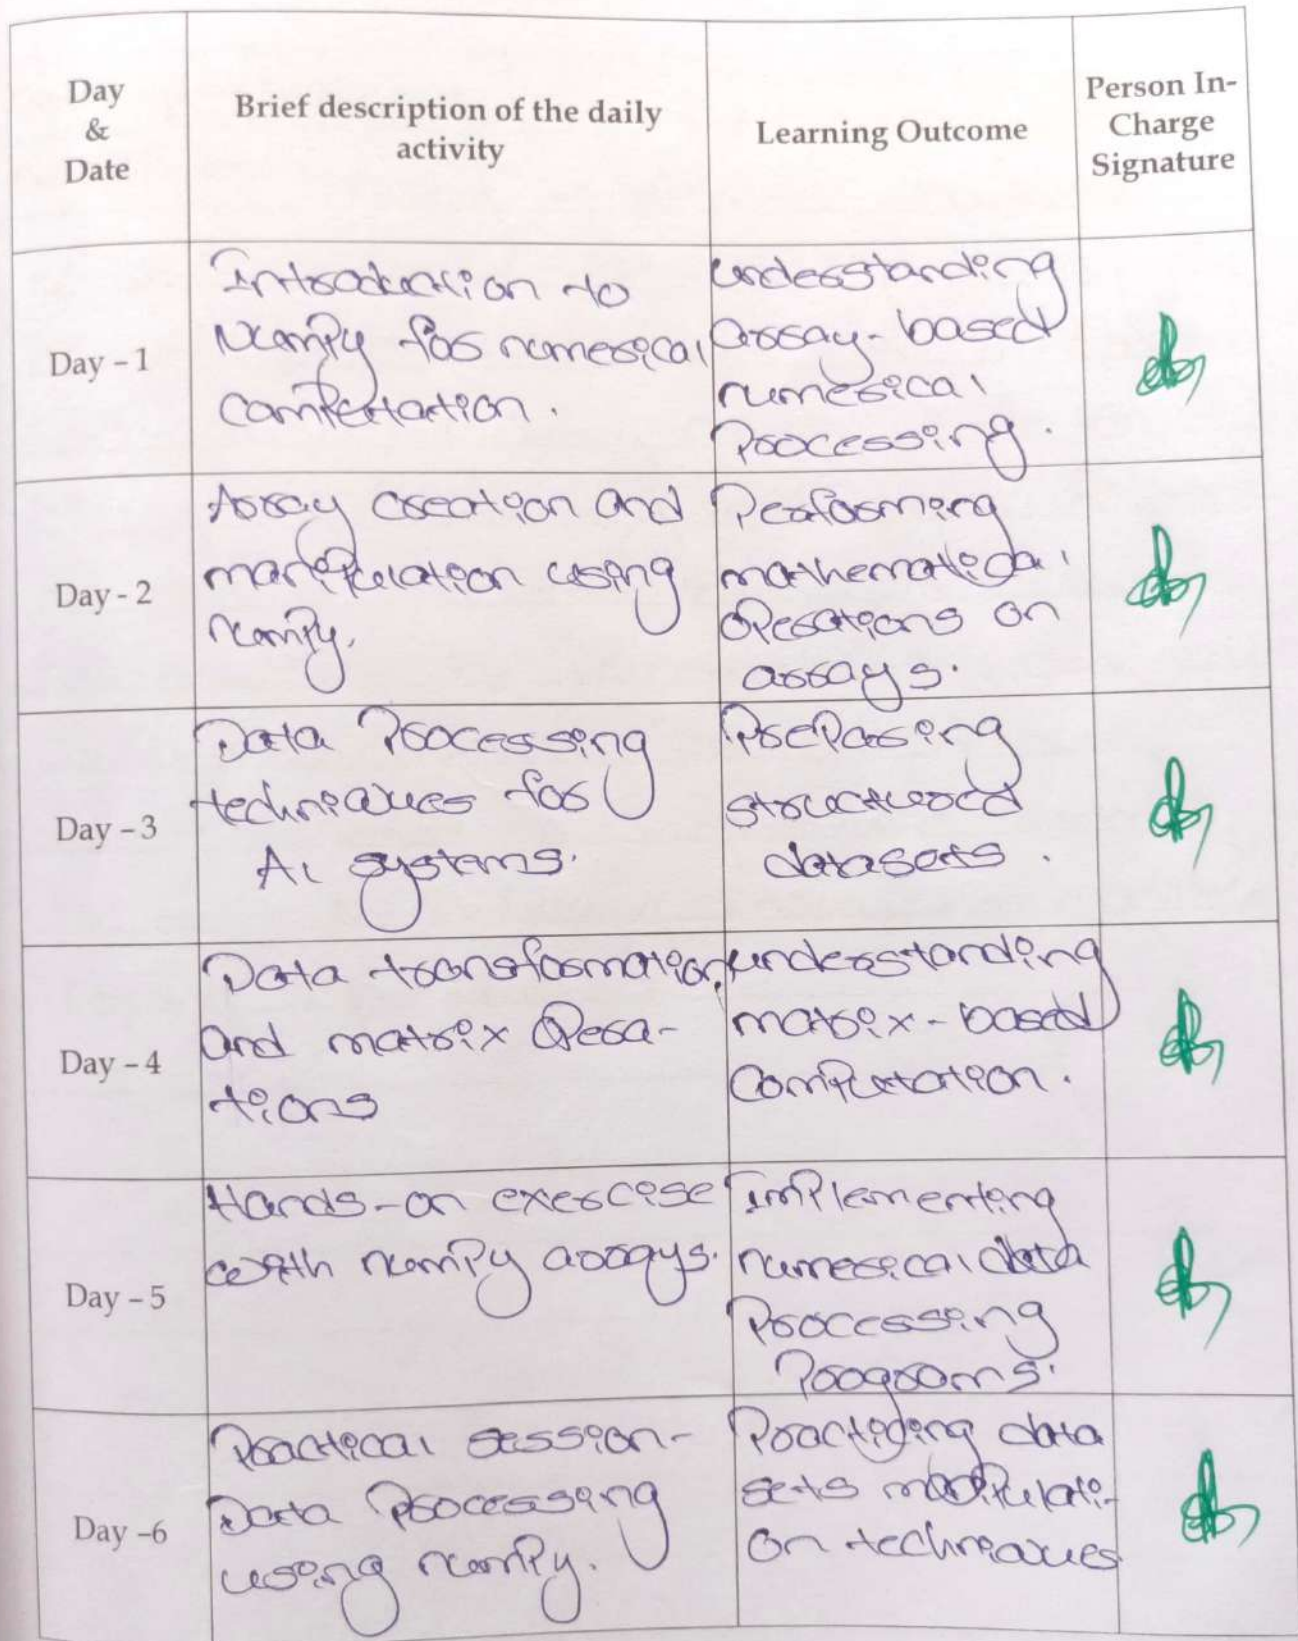 Day
&
Date
Brief description of the daily
activity
Learning Outcome
Person In-
Charge
Signature
Day – 1
Introduction to
Numpy for numerical
computation.
understanding
array-based
numerical
Processing.
Day - 2
Array creation and
manipulation using
numpy.
Performing
mathematical
operations on
arrays.
Day – 3
Data Processing
techniques for
AI systems.
Preparing
structured
datasets.
Day – 4
Data transformation,
and matrix Opera-
tions
understanding
matrix-based
Computation.
Day – 5
Hands-on exercise
with numpy arrays.
Implementing
numerical data
Processing
Programs.
Day –6
Practical session-
Data Processing
using numpy.
Practicing data
sets manipulati-
on techniques